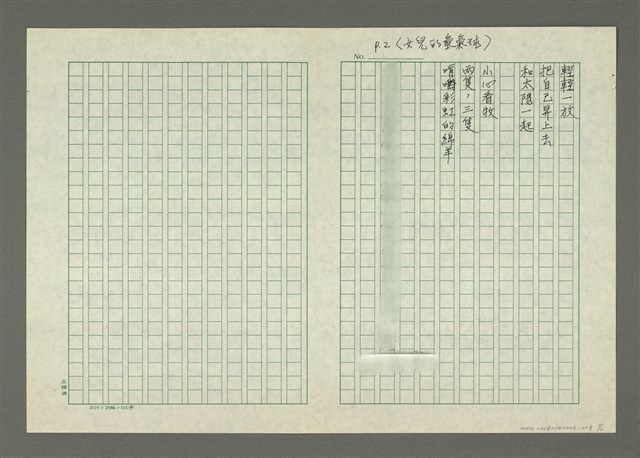 P.2(女兒的氫氣球)
No.
輕輕一放
把自己昇上去
和太陽一起
小心看牧
兩隻,三隻
啃嚼彩虹的綿羊